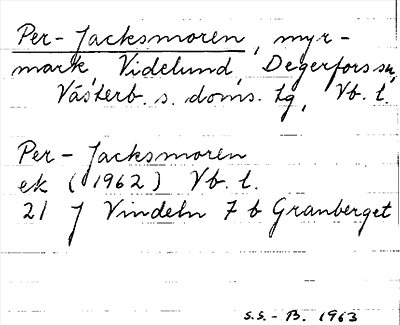 Per-Jacksmoren, myr-
mark, Videlund, Degerfors sn,
Västerb. s. doms. tg, Vb. l.
Per-Jacksmoren
ek (1962) Vb. l.
21 J Vindeln 7 b Granberget
s.s.-B. 1963